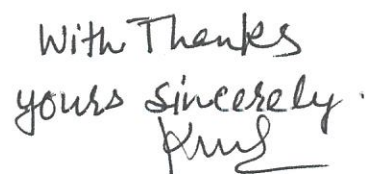 With Thanks
yours sincerely.